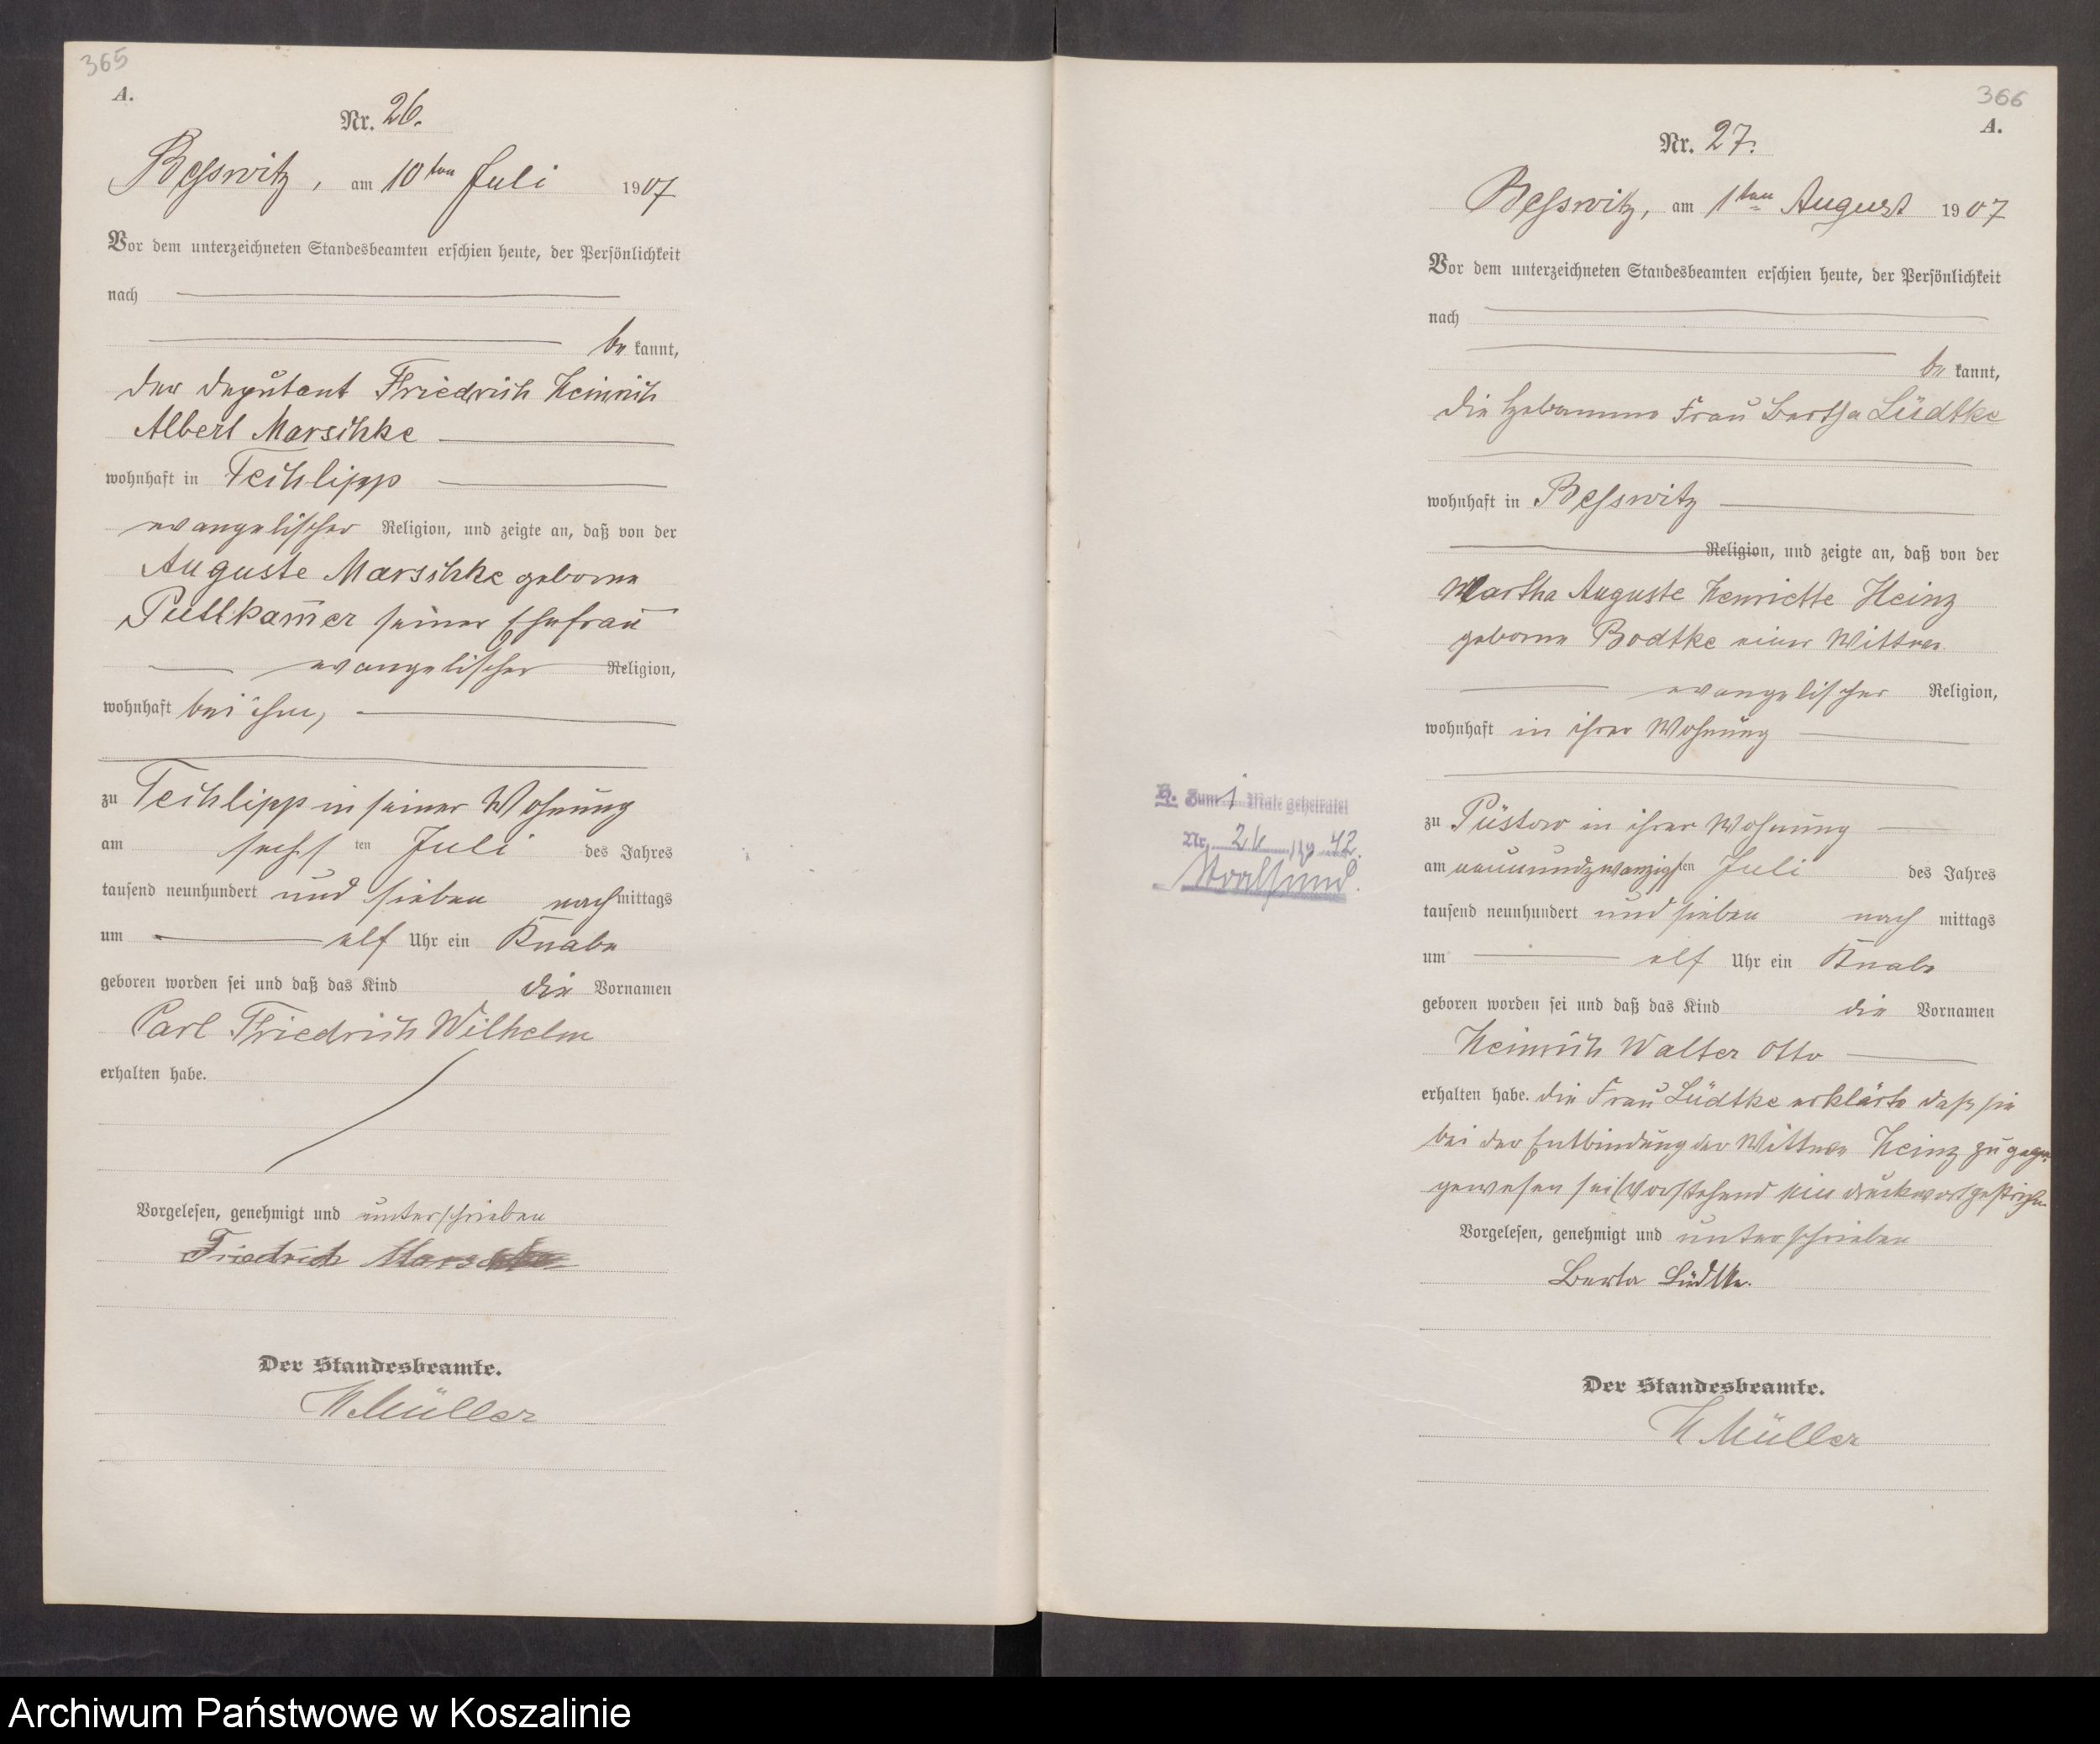 365
A.
Nr. 26.
Besswitz, am 10ten Juli 1907
Vor dem unterzeichneten Standesbeamten erschien heute, der Persönlichkeit
nach
be kannt,
der Deputant Friedrich Heinrich
Albert Marschke
wohnhaft in Techlipp
evangelischer Religion, und zeigte an, daß von der
Auguste Marschke geborne
Puttkam̅er seiner Ehefrau
evangelischer Religion,
wohnhaft bei ihm,
zu Techlipp in seiner Wohnung
am sechsten Juli des Jahres
tausend neunhundert und sieben nachmittags
um elf Uhr ein Knabe
geboren worden sei und daß das Kind die Vornamen
Carl Friedrich Wilhelm
erhalten habe.
Vorgelesen, genehmigt und unterschrieben
Friedrich Marschke
Der Standesbeamte.
H Müller
366
A.
Nr. 27.
Besswitz, am 1ten August 1907
Vor dem unterzeichneten Standesbeamten erschien heute, der Persönlichkeit
nach
be kannt,
die Hebamme Frau Bertha Lüdtke
wohnhaft in Besswitz
Religion, und zeigte an, daß von der
Martha Auguste Henriette Heinz
geborne Bodtke einer Wittwe
evangelischer Religion,
wohnhaft in ihrer Wohnung
zu Püstow in ihrer Wohnung
am neunundzwanzigsten Juli des Jahres
tausend neunhundert und sieben nach mittags
um elf Uhr ein Knabe
geboren worden sei und daß das Kind die Vornamen
Heinrich Walter Otto
erhalten habe. die Frau Lüdtke erklärte daß sie
bei der Entbindung der Wittwe Heinz zugegen
gewesen sei (Vorstehend ein Druckwort gestrichen
Vorgelesen, genehmigt und unterschrieben
Berta Lüdtke.
Der Standesbeamte.
H Müller
H. Zum 1 Male geheiratet
Nr. 26 /19 42.
Stralsund.
Archiwum Państwowe w Koszalinie